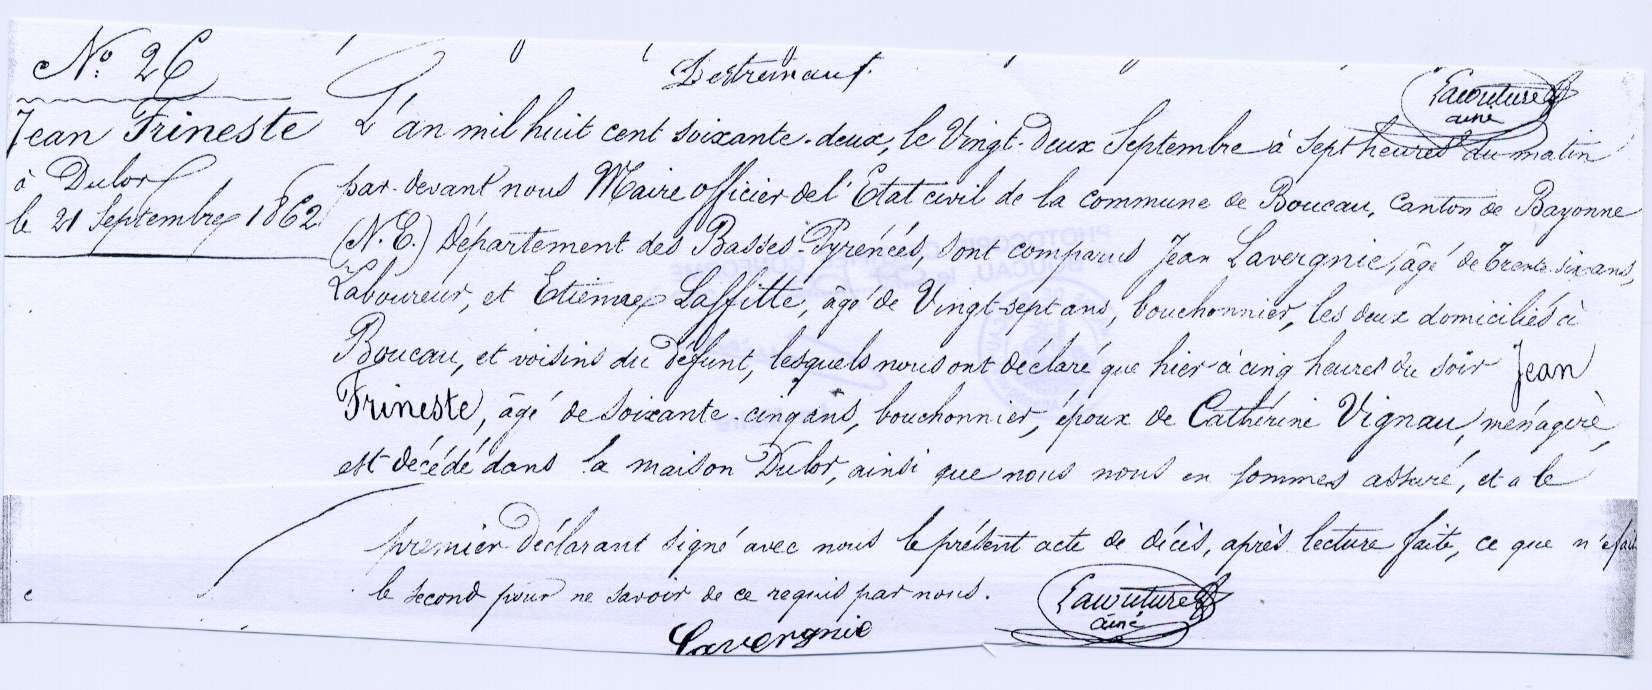 N.º 26
Jean Frineste
à Dulor
le 21 Septembre 1862.
Lacouture
ainé
L'an mil huit cent soixante-deux, le Vingt-deux Septembre à sept heures du matin
par-devant nous Maire officier de l'Etat civil de la commune de Boucau, Canton de Bayonne
(N.E.) Département des Basses-Pyrénées, sont comparus Jean Lavergnie, âgé de trente-six ans,
Laboureur, et Etienne Laffitte, âgé de Vingt-sept ans, bouchonnier, les deux domiciliés à
Boucau, et voisins du défunt, lesquels nous ont déclaré que hier à cinq heures du soir Jean
Frineste, âgé de soixante-cinq ans, bouchonnier, époux de Cathérine Vignau, ménagère,
est décédé dans la maison Dulor, ainsi que nous nous en sommes assuré, et a le
premier déclarant signé avec nous le présent acte de décès, après lecture faite, ce que n'a fait
le second pour ne savoir de ce requis par nous.
Lavergnie
Lacouture
ainé